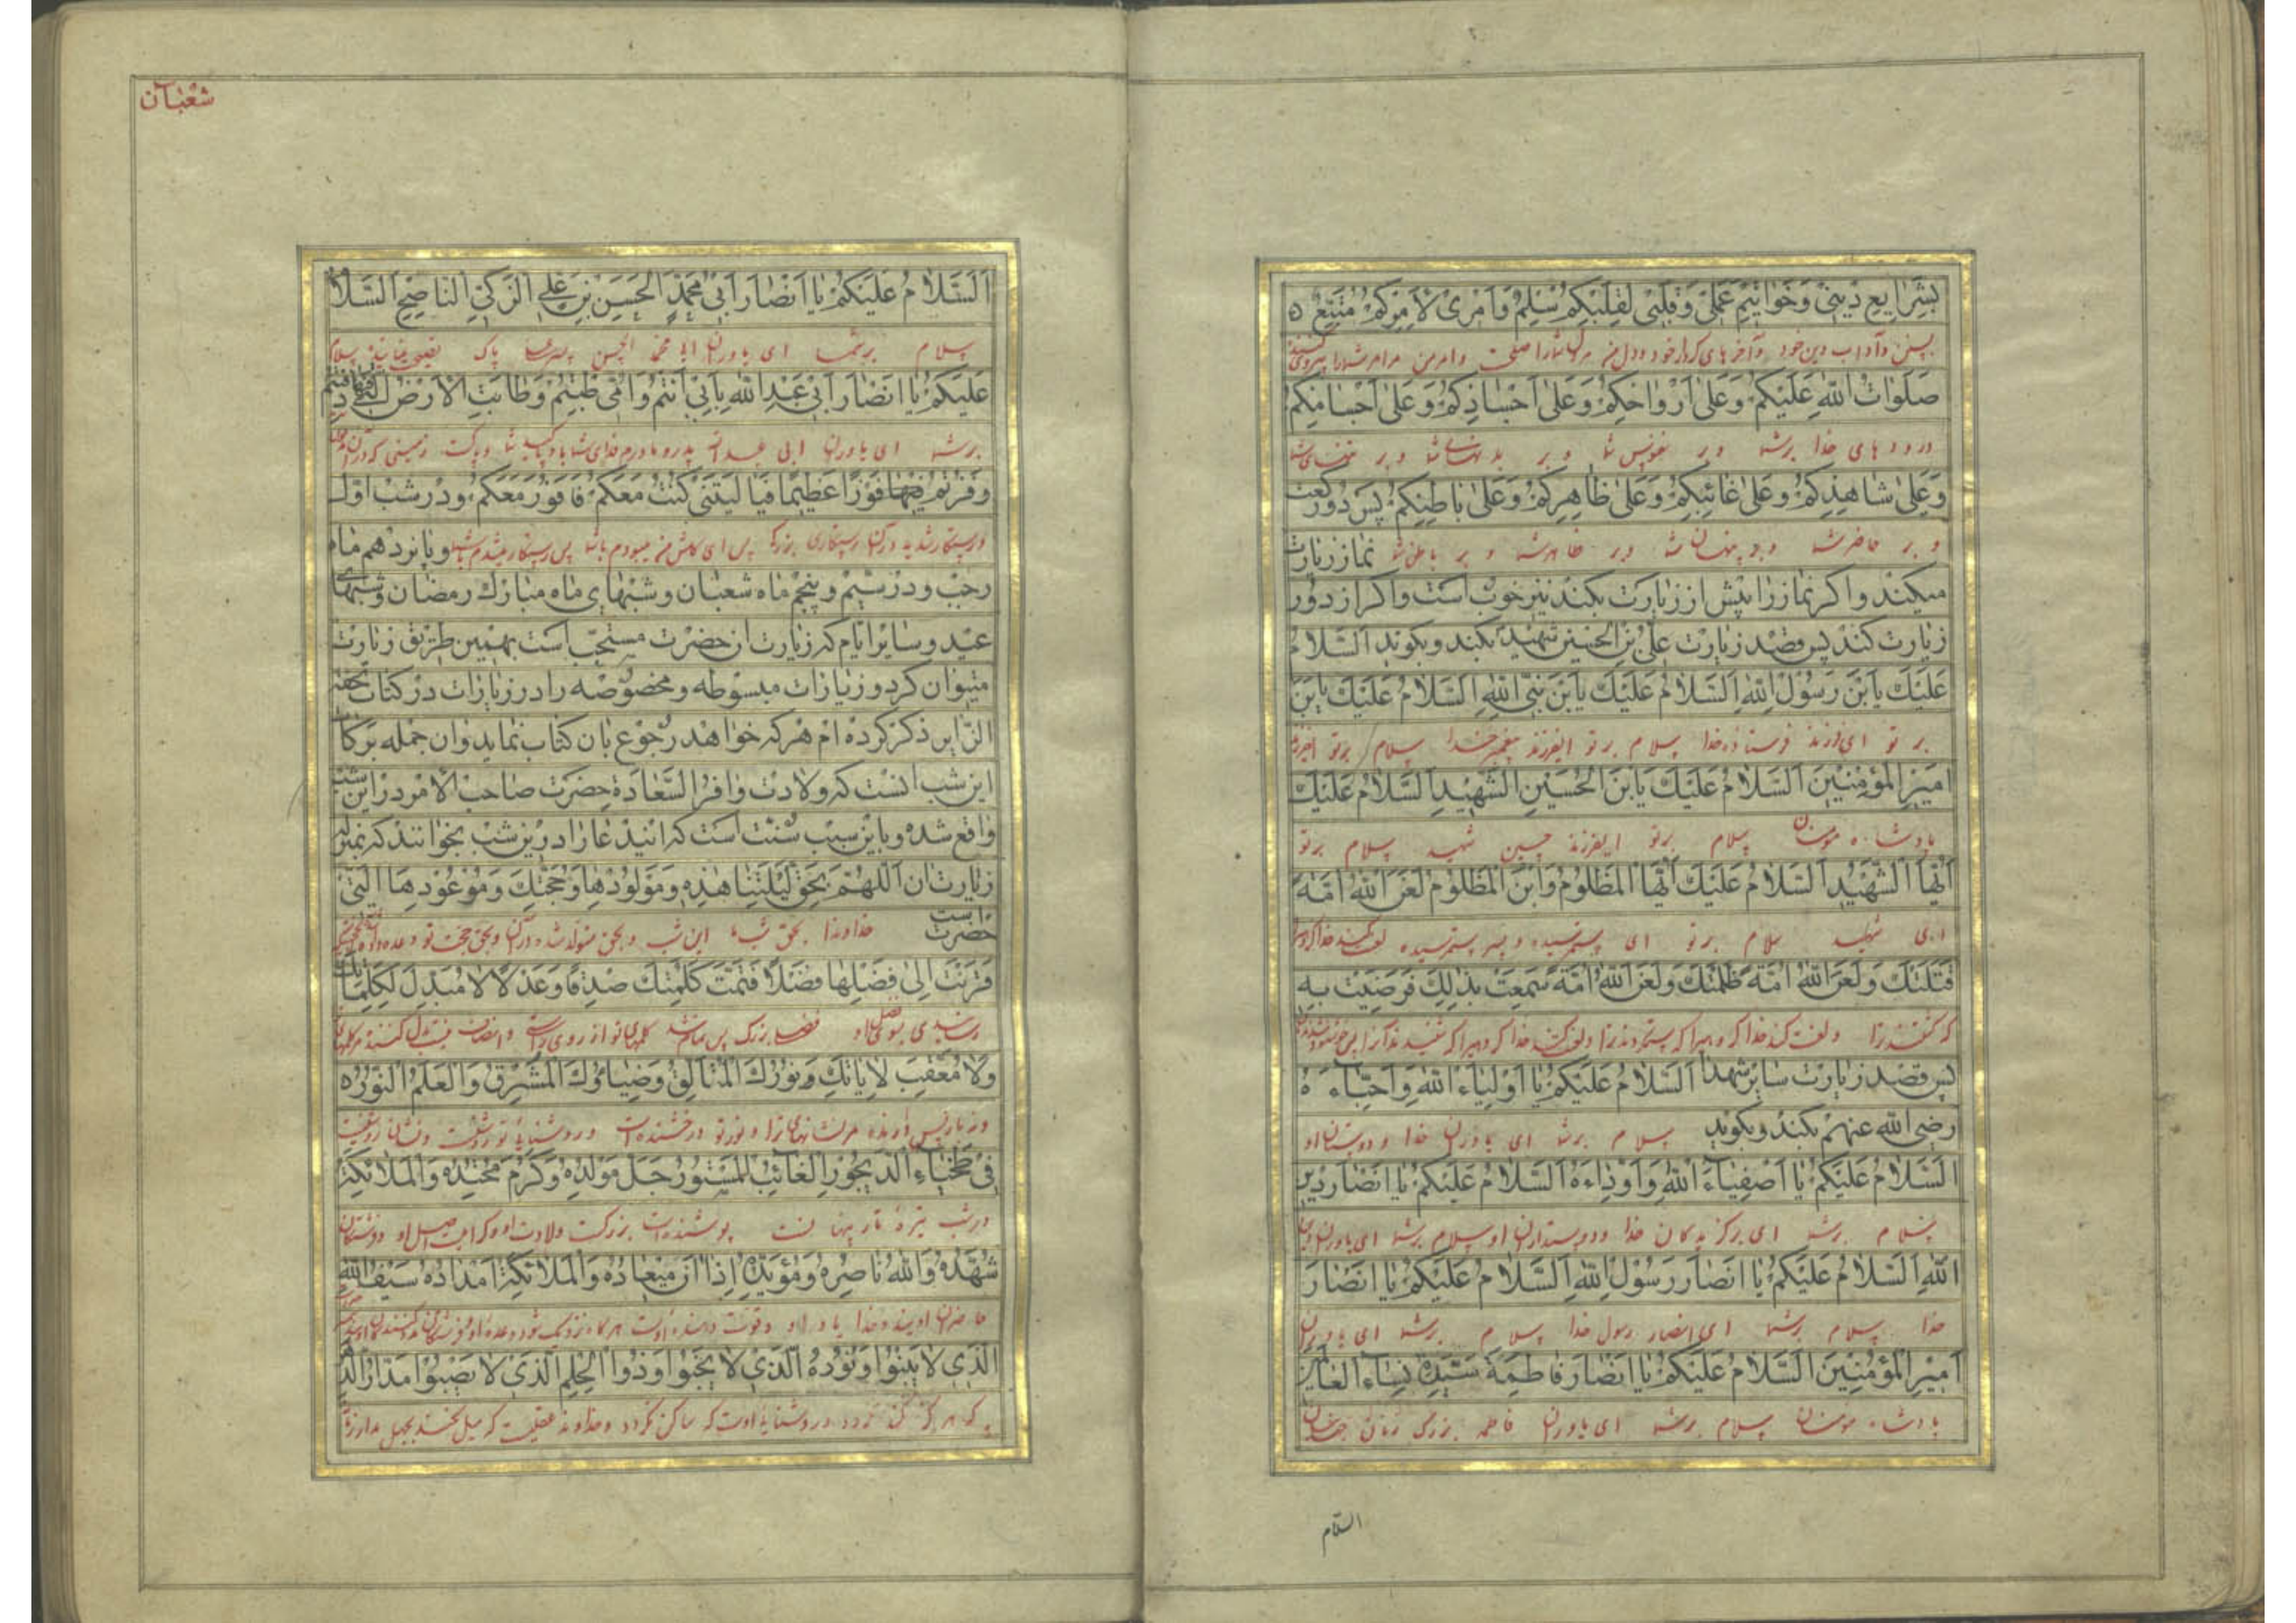 بِشَرایِعِ دینی وَخَواتیمِ عَمَلی وَقَلبی لِقَلبِکُم سِلمٌ وَاَمری لِاَمرِکُم مُتَّبِعٌ
صَلَواتُ اللهِ عَلَیکُم وَعَلی اَرواحِکُم وَعَلی اَجسادِکُم وَعَلی اَجسامِکُم
درودهای خدا بر شما و بر نفوس شما و بر بدنهای شما و بر
وَعَلی شاهِدِکُم وَعَلی غائِبِکُم وَعَلی ظاهِرِکُم وَعَلی باطِنِکُم پس دو رکعت
و بر حاضر شما و بر پنهان شما و بر ظاهر شما و بر باطن شما نماز زیارت
میکند و اکر نماز را پیش از زیارت بکند نیز خوب است و اکر از دور
زیارت کند پس قصد زیارت علی بن الحسین شهید بکند و بکوید اَلسَّلامُ
عَلَیکَ یَابنَ رَسُولِ اللهِ اَلسَّلامُ عَلَیکَ یَابنَ نَبِیِّ اللهِ اَلسَّلامُ عَلَیکَ یَابنَ
بر تو ای فرزند فرستاده خدا سلام بر تو ایفرزند پیغمبر خدا سلام بر تو ایفرزند
اَمیرِ المُؤمِنینَ اَلسَّلامُ عَلَیکَ یَابنَ الحُسَینِ الشَّهیدِ اَلسَّلامُ عَلَیکَ
پادشاه مومنان سلام بر تو ایفرزند حسین شهید سلام بر تو
اَیُّهَا الشَّهیدُ اَلسَّلامُ عَلَیکَ اَیُّهَا المَظلُومُ وَابنَ المَظلُومِ لَعَنَ اللهُ اُمَّةً
ای شهید سلام بر تو ای ستم رسیده و پسر ستم رسیده لعنت کند خدا
قَتَلَتکَ وَلَعَنَ اللهُ اُمَّةً ظَلَمَتکَ وَلَعَنَ اللهُ اُمَّةً سَمِعَت بِذلِکَ فَرَضِیَت بِهِ
که کشتند ترا و لعنت کند خدا کروهیرا که ستم کردند ترا و لعنت کند خدا کروهیرا که شنیدند
پس قصد زیارت سایر شهدا اَلسَّلامُ عَلَیکُم یا اَولِیاءَ اللهِ وَاَحِبّاءَهُ
رضی الله عنهم بکند و بکوید سلام بر شما ای یاوران خدا و دوستان او
اَلسَّلامُ عَلَیکُم یا اَصفِیاءَ اللهِ وَاَوِدّاءَهُ اَلسَّلامُ عَلَیکُم یا اَنصارَ دینِ
سلام بر شما ای برکزیدکان خدا و دوستداران او سلام بر شما ای یاوران دین
اللهِ اَلسَّلامُ عَلَیکُم یا اَنصارَ رَسُولِ اللهِ اَلسَّلامُ عَلَیکُم یا اَنصارَ
خدا سلام بر شما ای انصار رسول خدا سلام بر شما ای یاوران
اَمیرِ المُؤمِنینَ اَلسَّلامُ عَلَیکُم یا اَنصارَ فاطِمَةَ سَیِّدَةِ نِساءِ العالَمینَ
پادشاه مومنان سلام بر شما ای یاوران فاطمه بزرک زنان جهانیان
السّلام
شَعْبان
اَلسَّلامُ عَلَیکُم یا اَنصارَ اَبی مُحَمَّدٍ الحَسَنِ بنِ عَلِیٍّ الزَّکِیِّ النّاصِحِ اَلسَّلامُ
سلام بر شما ای یاوران ابا محمد الحسن پسر علی پاک سلام
عَلَیکُم یا اَنصارَ اَبی عَبدِ اللهِ بِاَبی اَنتُم وَاُمّی طِبتُم وَطابَتِ الاَرضُ الَّتی فیها دُفِنتُم
بر شما ای یاوران ابی عبدالله پدر و مادرم فدای شما باد پاکید شما و پاکست زمینی که در آن
وَفُزتُم فیها فَوزًا عَظیمًا فَیا لَیتَنی کُنتُ مَعَکُم فَاَفُوزَ مَعَکُم و در شب اول
و رستکار شدید در آن رستکاری بزرک پس ای کاش من میبودم با شما پس رستکار میشدم با شما و پانزدهم ماه
رجب و در سیم و پنجم ماه شعبان و شبهای ماه مبارک رمضان و شبهای
عید و سایر ایام که زیارت آن حضرت مستحب است بهمین طریق زیارت
میتوان کرد و زیارات مبسوطه و مخصوصه را در زیارات در کتاب تحفة
الزّایر ذکر کرده ام هر که خواهد رجوع بآن کتاب نماید و از جمله برکات
این شب آنست که ولادت وافر السّعادة حضرت صاحب الامر در این شب
واقع شده و باین سبب سنت است که این دعا را در این شب بخوانند که بمنزلهٔ
زیارت آن اَللّهُمَّ بِحَقِّ لَیلَتِنا هذِهِ وَمَولُودِها وَحُجَّتِکَ وَمَوعُودِهَا الَّتی
حضرت است خداوندا بحق شب ما این شب و بحق متولد شده در آن و بحق حجت تو و وعده داده
قَرَنتَ اِلی فَضلِها فَضلًا فَتَمَّت کَلِمَتُکَ صِدقًا وَعَدلًا لا مُبَدِّلَ لِکَلِماتِکَ
وَلا مُعَقِّبَ لِایاتِکَ وَنُورُکَ المُتَاَلِّقُ وَضِیاؤُکَ المُشرِقُ وَالعَلَمُ النُّورُ
فی طَخیاءِ الدَّیجُورِ الغائِبُ المَستُورُ جَلَّ مَولِدُهُ وَکَرُمَ مَحتِدُهُ وَالمَلائِکَةُ
شُهَّدُهُ وَاللهُ ناصِرُهُ وَمُؤَیِّدُهُ اِذا انَ میعادُهُ وَالمَلائِکَةُ اَمدادُهُ سَیفُ اللهِ
الَّذی لا یَنبُوا وَنُورُهُ الَّذی لا یَخبُوا وَذُوا الحِلمِ الَّذی لا یَصبُوا مَدارُ الدَّهرِ